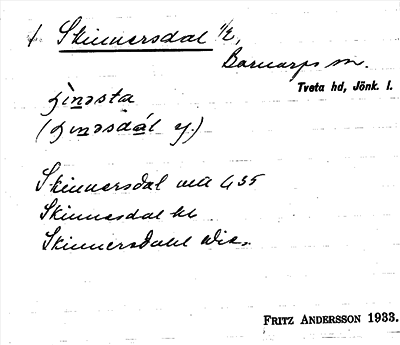 /. Skinnersdal 1/2,
Barnarps sn.
Tveta hd, Jönk. l.
ʒinəsta
(ʒinəsdál y.)
Skinnersdal 435
Skinnesdal kl
Skinnersdahl
FRITZ ANDERSSON 1933.